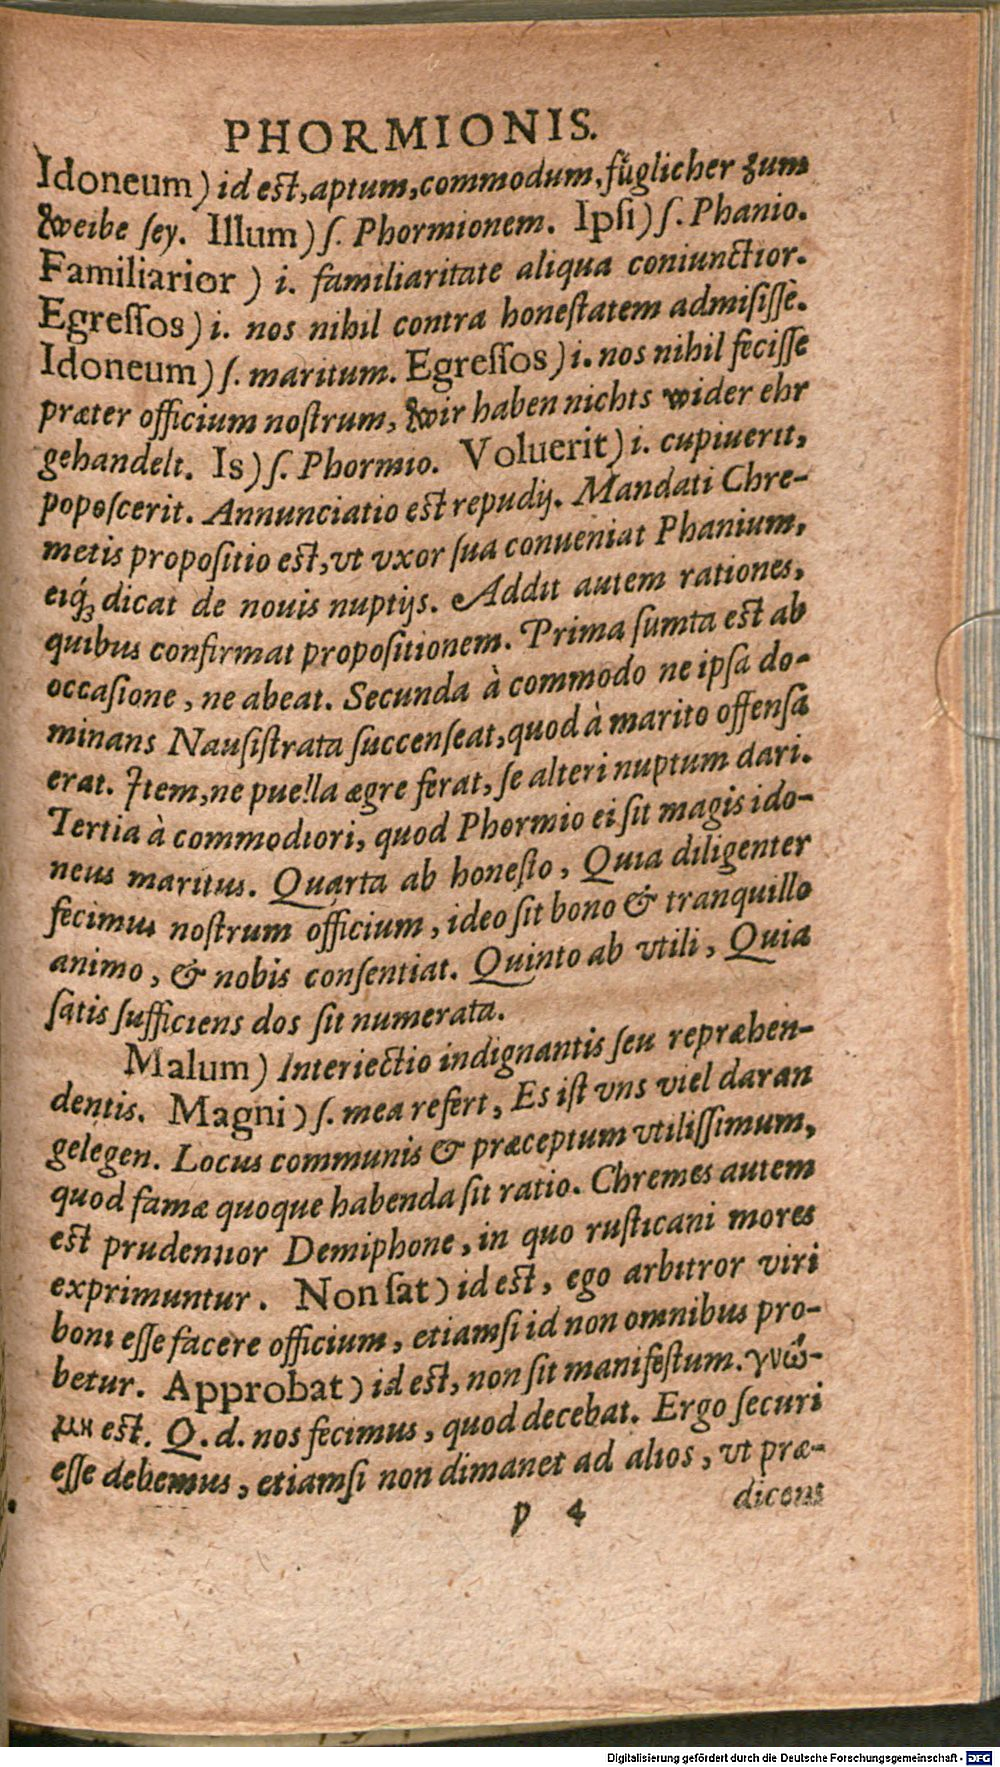 PHORMIONIS.
Idoneum) id est, aptum, commodum, fuͤglicher zum
weibe sey. Illum) ſ. Phormionem. Ipsi) ſ. Phanio.
Familiarior) i. familiaritate aliqua coniunctior.
Egressos) i. nos nihil contra honeſtatem admiſiſſe.
Idoneum) ſ. maritum. Egreſſos) i. nos nihil feciſſe
præter officium noſtrum, wir haben nichts wider ehr
gehandelt. Is) ſ. Phormio. Voluerit) i. cupiuerit,
popoſcerit. Annunciatio est repudij. Mandati Chre-
metis propoſitio eſt, vt vxor ſua conueniat Phanium,
eiq́ꝫ dicat de nouis nuptijs. Addit autem rationes,
quibus confirmat propoſitionem. Prima ſumta eſt ab
occaſione, ne abeat. Secunda à commodo ne ipſa do-
minans Nauſiſtrata ſuccenſeat, quod à marito offenſa
erat. Item, ne puella ægre ferat, ſe alteri nuptum dari.
Tertia à commodiori, quod Phormio ei ſit magis ido-
neus maritus. Quarta ab honeſto, Quia diligenter
fecimus noſtrum officium, ideo ſit bono & tranquillo
animo, & nobis conſentiat. Quinto ab vtili, Quia
ſatis ſufficiens dos ſit numerata.
Malum) Interiectio indignantis ſeu repræhen-
dentis. Magni) ſ. mea refert, Es iſt vns viel daran
gelegen. Locus communis & præceptum vtiliſſimum,
quod famæ quoque habenda ſit ratio. Chremes autem
eſt prudentior Demiphone, in quo ruſticani mores
exprimuntur. Non ſat) id eſt, ego arbitror viri
boni eſſe facere officium, etiamſi id non omnibus pro-
betur. Approbat) id eſt, non ſit manifeſtum. γνώ-
μη eſt. Q. d. nos fecimus, quod decebat. Ergo ſecuri
eſſe debemus, etiamſi non dimanet ad alios, vt præ-
p 4 dicens
Digitalisierung gefördert durch die Deutsche Forschungsgemeinschaft - DFG